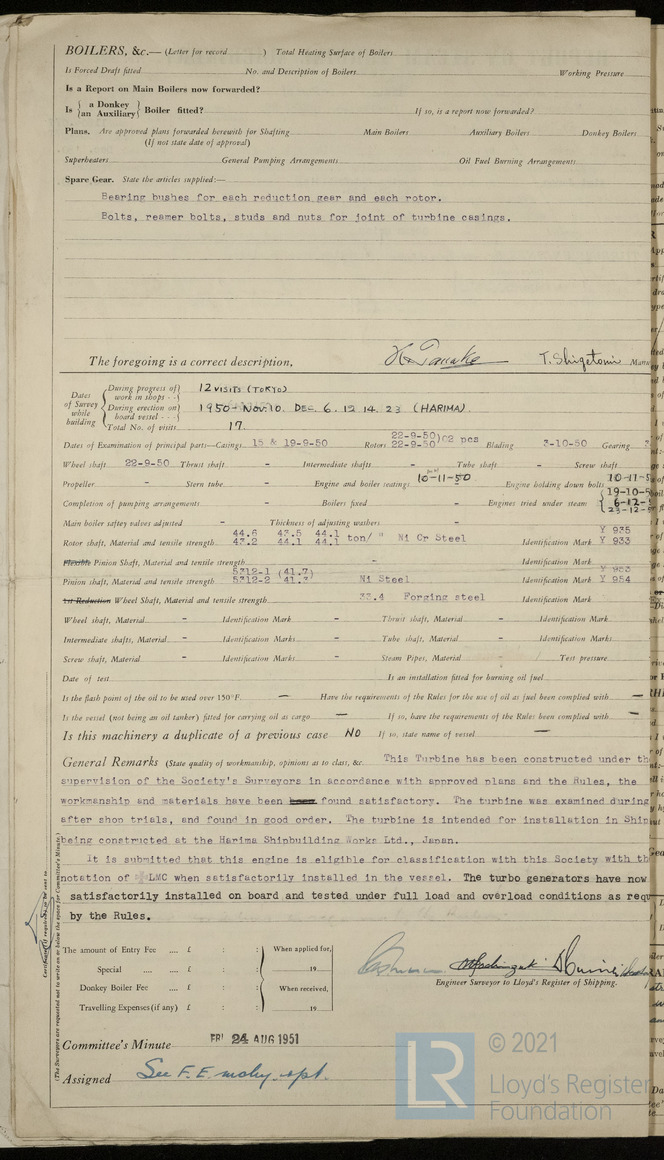 BOILERS, &c.— (Letter for record ) Total Heating Surface of Boilers
Is Forced Draft fitted No. and Description of Boilers Working Pressure
Is a Report on Main Boilers now forwarded?
Is { a Donkey an Auxiliary } Boiler fitted? If so, is a report now forwarded?
Plans. Are approved plans forwarded herewith for Shafting Main Boilers Auxiliary Boilers Donkey Boilers
(If not state date of approval)
Superheaters General Pumping Arrangements Oil Fuel Burning Arrangements
Spare Gear. State the articles supplied:—
Bearing bushes for each reduction gear and each rotor.
Bolts, reamer bolts, studs and nuts for joint of turbine casings.
The foregoing is a correct description, T. Shigetomi Manu
Dates of Survey while building
During progress of work in shops - - 12 VISITS (TOKYO)
During erection on board vessel - - - 1950 - Nov. 10. Dec. 6. 12 14. 23 (HARIMA).
Total No. of visits 17.
Dates of Examination of principal parts—Casings 15 & 19-9-50 Rotors 22-9-50) 22-9-50) 02 pcs Blading 3-10-50 Gearing 3
Wheel shaft 22-9-50 Thrust shaft - Intermediate shafts - Tube shaft - Screw shaft
Propeller - Stern tube - Engine and boiler seatings 10-11-50 Engine holding down bolts 10-11-5
Completion of pumping arrangements - Boilers fixed - Engines tried under steam { 19-10-5 6-12- 23-12-5
Main boiler saftey valves adjusted - Thickness of adjusting washers -
Rotor shaft, Material and tensile strength 44.6 43.5 44.1 43.2 44.1 44.1 ton/" Ni Cr Steel Identification Mark Y 935 Y 933
Flexible Pinion Shaft, Material and tensile strength - Identification Mark
Pinion shaft, Material and tensile strength 5312-1 (41.7) 5312-2 (41.3) Ni Steel Identification Mark Y 953 Y 954
1st Reduction Wheel Shaft, Material and tensile strength 33.4 Forging steel Identification Mark
Wheel shaft, Material - Identification Mark - Thrust shaft, Material - Identification Mark
Intermediate shafts, Material - Identification Marks - Tube shaft, Material - Identification Marks
Screw shaft, Material - Identification Marks - Steam Pipes, Material - Test pressure
Date of test Is an installation fitted for burning oil fuel
Is the flash point of the oil to be used over 150°F. — Have the requirements of the Rules for the use of oil as fuel been complied with —
Is the vessel (not being an oil tanker) fitted for carrying oil as cargo — If so, have the requirements of the Rules been complied with —
Is this machinery a duplicate of a previous case NO If so, state name of vessel —
General Remarks (State quality of workmanship, opinions as to class, &c. This Turbine has been constructed under th
supervision of the Society's Surveyors in accordance with approved plans and the Rules, the
workmanship and materials have been found satisfactory. The turbine was examined during
after shop trials, and found in good order. The turbine is intended for installation in Ship
being constructed at the Harima Shipbuilding Works Ltd., Japan.
It is submitted that this engine is eligible for classification with this Society with th
notation of LMC when satisfactorily installed in the vessel. The turbo generators have now
satisfactorily installed on board and tested under full load and overload conditions as requ
by the Rules.
(The Surveyors are requested not to write on or below the space for Committee's Minute.)
The amount of Entry Fee .... £ : : When applied for,
Special .... .... £ : : 19
Donkey Boiler Fee .... £ : : When received,
Travelling Expenses (if any) £ : : 19
Engineer Surveyor to Lloyd's Register of Shipping.
Committee's Minute FRI 24 AUG 1951
Assigned See F.E. mchy. rpt.
LR © 2021
Lloyd's Register
Foundation